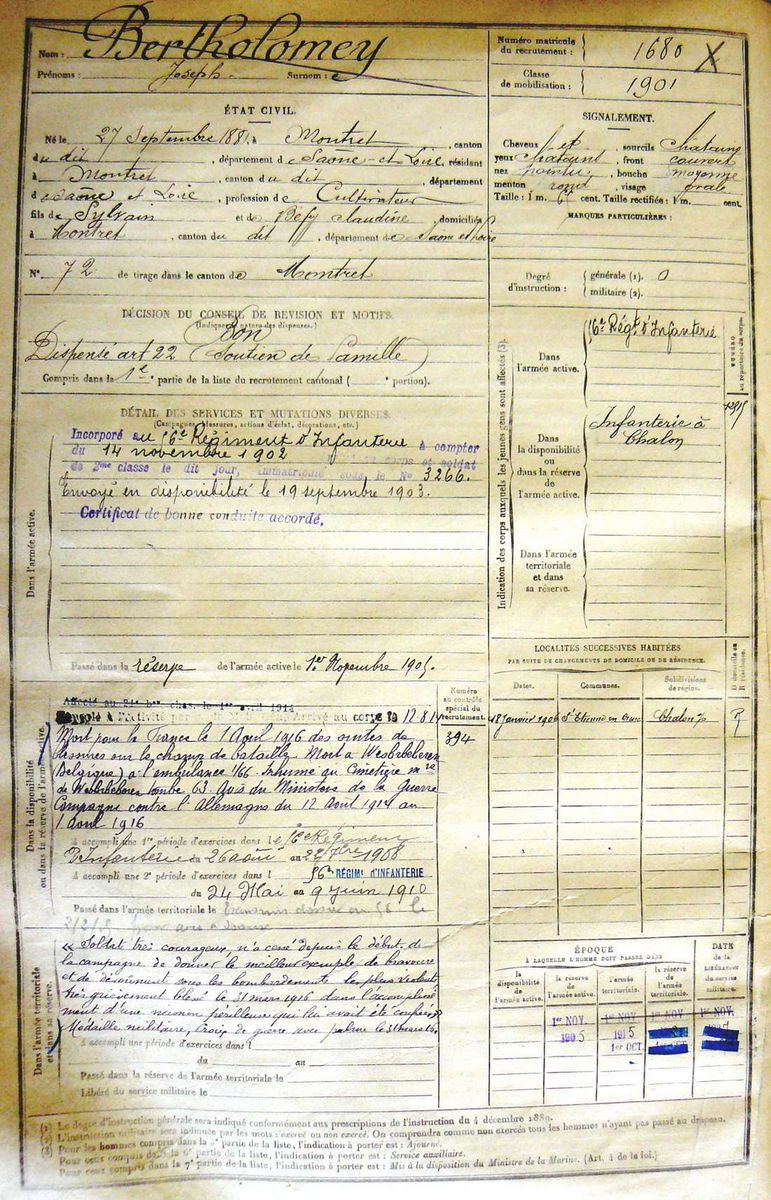 Nom : Bertholomey
Prénoms : Joseph Surnom :
Numéro matricule du recrutement : 1680
Classe de mobilisation : 1901
ÉTAT CIVIL.
Né le 27 Septembre 1881, à Montret, canton
du dit, département de Saône-et-Loire, résidant
à Montret canton du dit, département
de Saône et Loire, profession de Cultivateur
fils de Sylvain et de Claudine, domiciliés
à Montret, canton du dit, département de Saone et Loire
N° 72 de tirage dans le canton de Montret
SIGNALEMENT.
Cheveux et sourcils Chatains
yeux Chatains, front couvert
nez pointu, bouche moyenne
menton rond, visage ovale
Taille : 1 m. cent. Taille rectifiée : 1 m. cent.
MARQUES PARTICULIÈRES :
Degré d'instruction : générale (1). 0
militaire (2).
DÉCISION DU CONSEIL DE REVISION ET MOTIFS.
(Indiquer la nature des dispenses.)
Bon
Dispensé art 22 (Soutien de famille)
Compris dans la 1e partie de la liste du recrutement cantonal ( portion).
DÉTAIL DES SERVICES ET MUTATIONS DIVERSES.
(Campagnes, blessures, actions d'éclat, décorations, etc.)
Incorporé au Régiment d'Infanterie à compter
du 14 novembre 1902 au corps et soldat
de 2me classe le dit jour, immatriculé sous le No 3266.
Envoyé en disponibilité le 19 septembre 1903.
Certificat de bonne conduite accordé.
Dans l'armée active.
Passé dans la réserve de l'armée active le 1er Novembre 1905.
Indication des corps auxquels les jeunes gens sont affectés (3).
Dans l'armée active.
Régt d'Infanterie
NUMÉRO au répertoire du corps.
Dans la disponibilité ou dans la réserve de l'armée active.
Infanterie à
Chalon
Dans l'armée territoriale et dans sa réserve.
LOCALITÉS SUCCESSIVES HABITÉES
PAR SUITE DE CHANGEMENTS DE DOMICILE OU DE RÉSIDENCE.
Dates. Communes. Subdivisions de région. D domicile ou R résidence.
18 Janvier 1906 St Etienne en Chalon R
Numéro au contrôle spécial du recrutement.
394
Dans la disponibilité ou dans la réserve de l'armée active.
Affecté au chas. le 1er avril 1914
Arrivé au corps le 12.8.14
Mort pour la France le 1 Avril 1916 des suites de
blessures sur le champ de bataille Mort a
(Belgique) à l'ambulance 1/66. Inhumé au Cimetière
de tombe 63 Avis du Ministère de la Guerre
Campagne contre l'Allemagne du 12 Août 1914 au
1 Avril 1916
A accompli une 1re période d'exercices dans le Régiment
D'Infanterie du 26 août au 1908
A accompli une 2e période d'exercices dans l 56e RÉGIMt D'INFANTERIE
du 24 Mai au 9 juin 1910
Passé dans l'armée territoriale le
Dans l'armée territoriale et dans sa réserve.
« Soldat très courageux n'a cessé depuis le début de
la campagne de donner le meilleur exemple de bravoure
et de dévouement sous les bombardements les plus violents
très grièvement blessé le 31 mars 1916 dans l'accomplisse
ment d'une mission périlleuse qui lui avait été confiée »
Médaille militaire, Croix de guerre avec palme
A accompli une période d'exercices dans l
du au
Passé dans la réserve de l'armée territoriale le
Libéré du service militaire le
ÉPOQUE
À LAQUELLE L'HOMME DOIT PASSER DANS
DATE de la LIBÉRATION du service militaire.
la disponibilité de l'armée active. la réserve de l'armée active. l'armée territoriale. la réserve de l'armée territoriale.
1er NOV. 1er NOV. 1er NOV. 1er NOV.
1905 1915
1er OCT.
(1) Le degré d'instruction générale sera indiqué conformément aux prescriptions de l'instruction du 4 décembre 1889.
(2) L'instruction militaire sera indiquée par les mots : exercé ou non exercé. On comprendra comme non exercés tous les hommes n'ayant pas passé au drapeau.
(3) Pour les hommes compris dans la 5e partie de la liste, l'indication à porter est : Ajourné.
Pour ceux compris dans la 6e partie de la liste, l'indication à porter est : Service auxiliaire.
Pour ceux compris dans la 7e partie de la liste, l'indication à porter est : Mis à la disposition du Ministre de la Marine. (Art. 4 de la loi.)